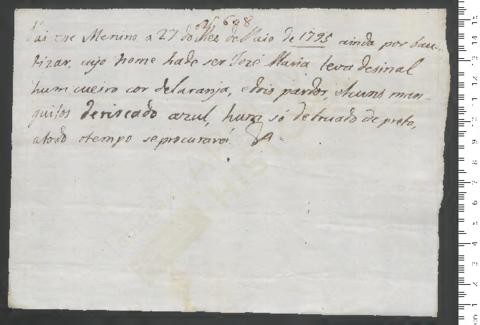 nº 698
Vai este Menino a 27 do Mez de Maio de 1795 ainda por bau-
tizar, cujo nome hade ser José Maria leva desinal
hum cueiro cor delaranja, e dois pardos, e huns man-
guitos deriscado azul, hum só debruado de preto,
atodo otempo se procurará.